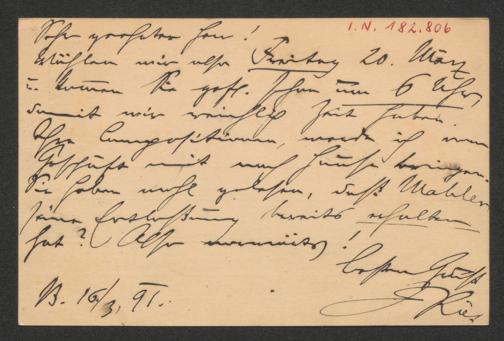 I. N. 182.806
Sehr geehrter Herr!
Wählen wir also Freitag 20. März
u. kommen Sie gefl. schon um 6 Uhr,
damit wir reichlich Zeit haben.
Ihre Compositionen, werde ich vom
Geschäft mit nach Hause bringen.
Sie haben wohl gelesen, daß Mahler
seine Entlaßung bereits erhalten
hat? (Also vorwärts)!
besten Gruß
B. 16/3. 91.